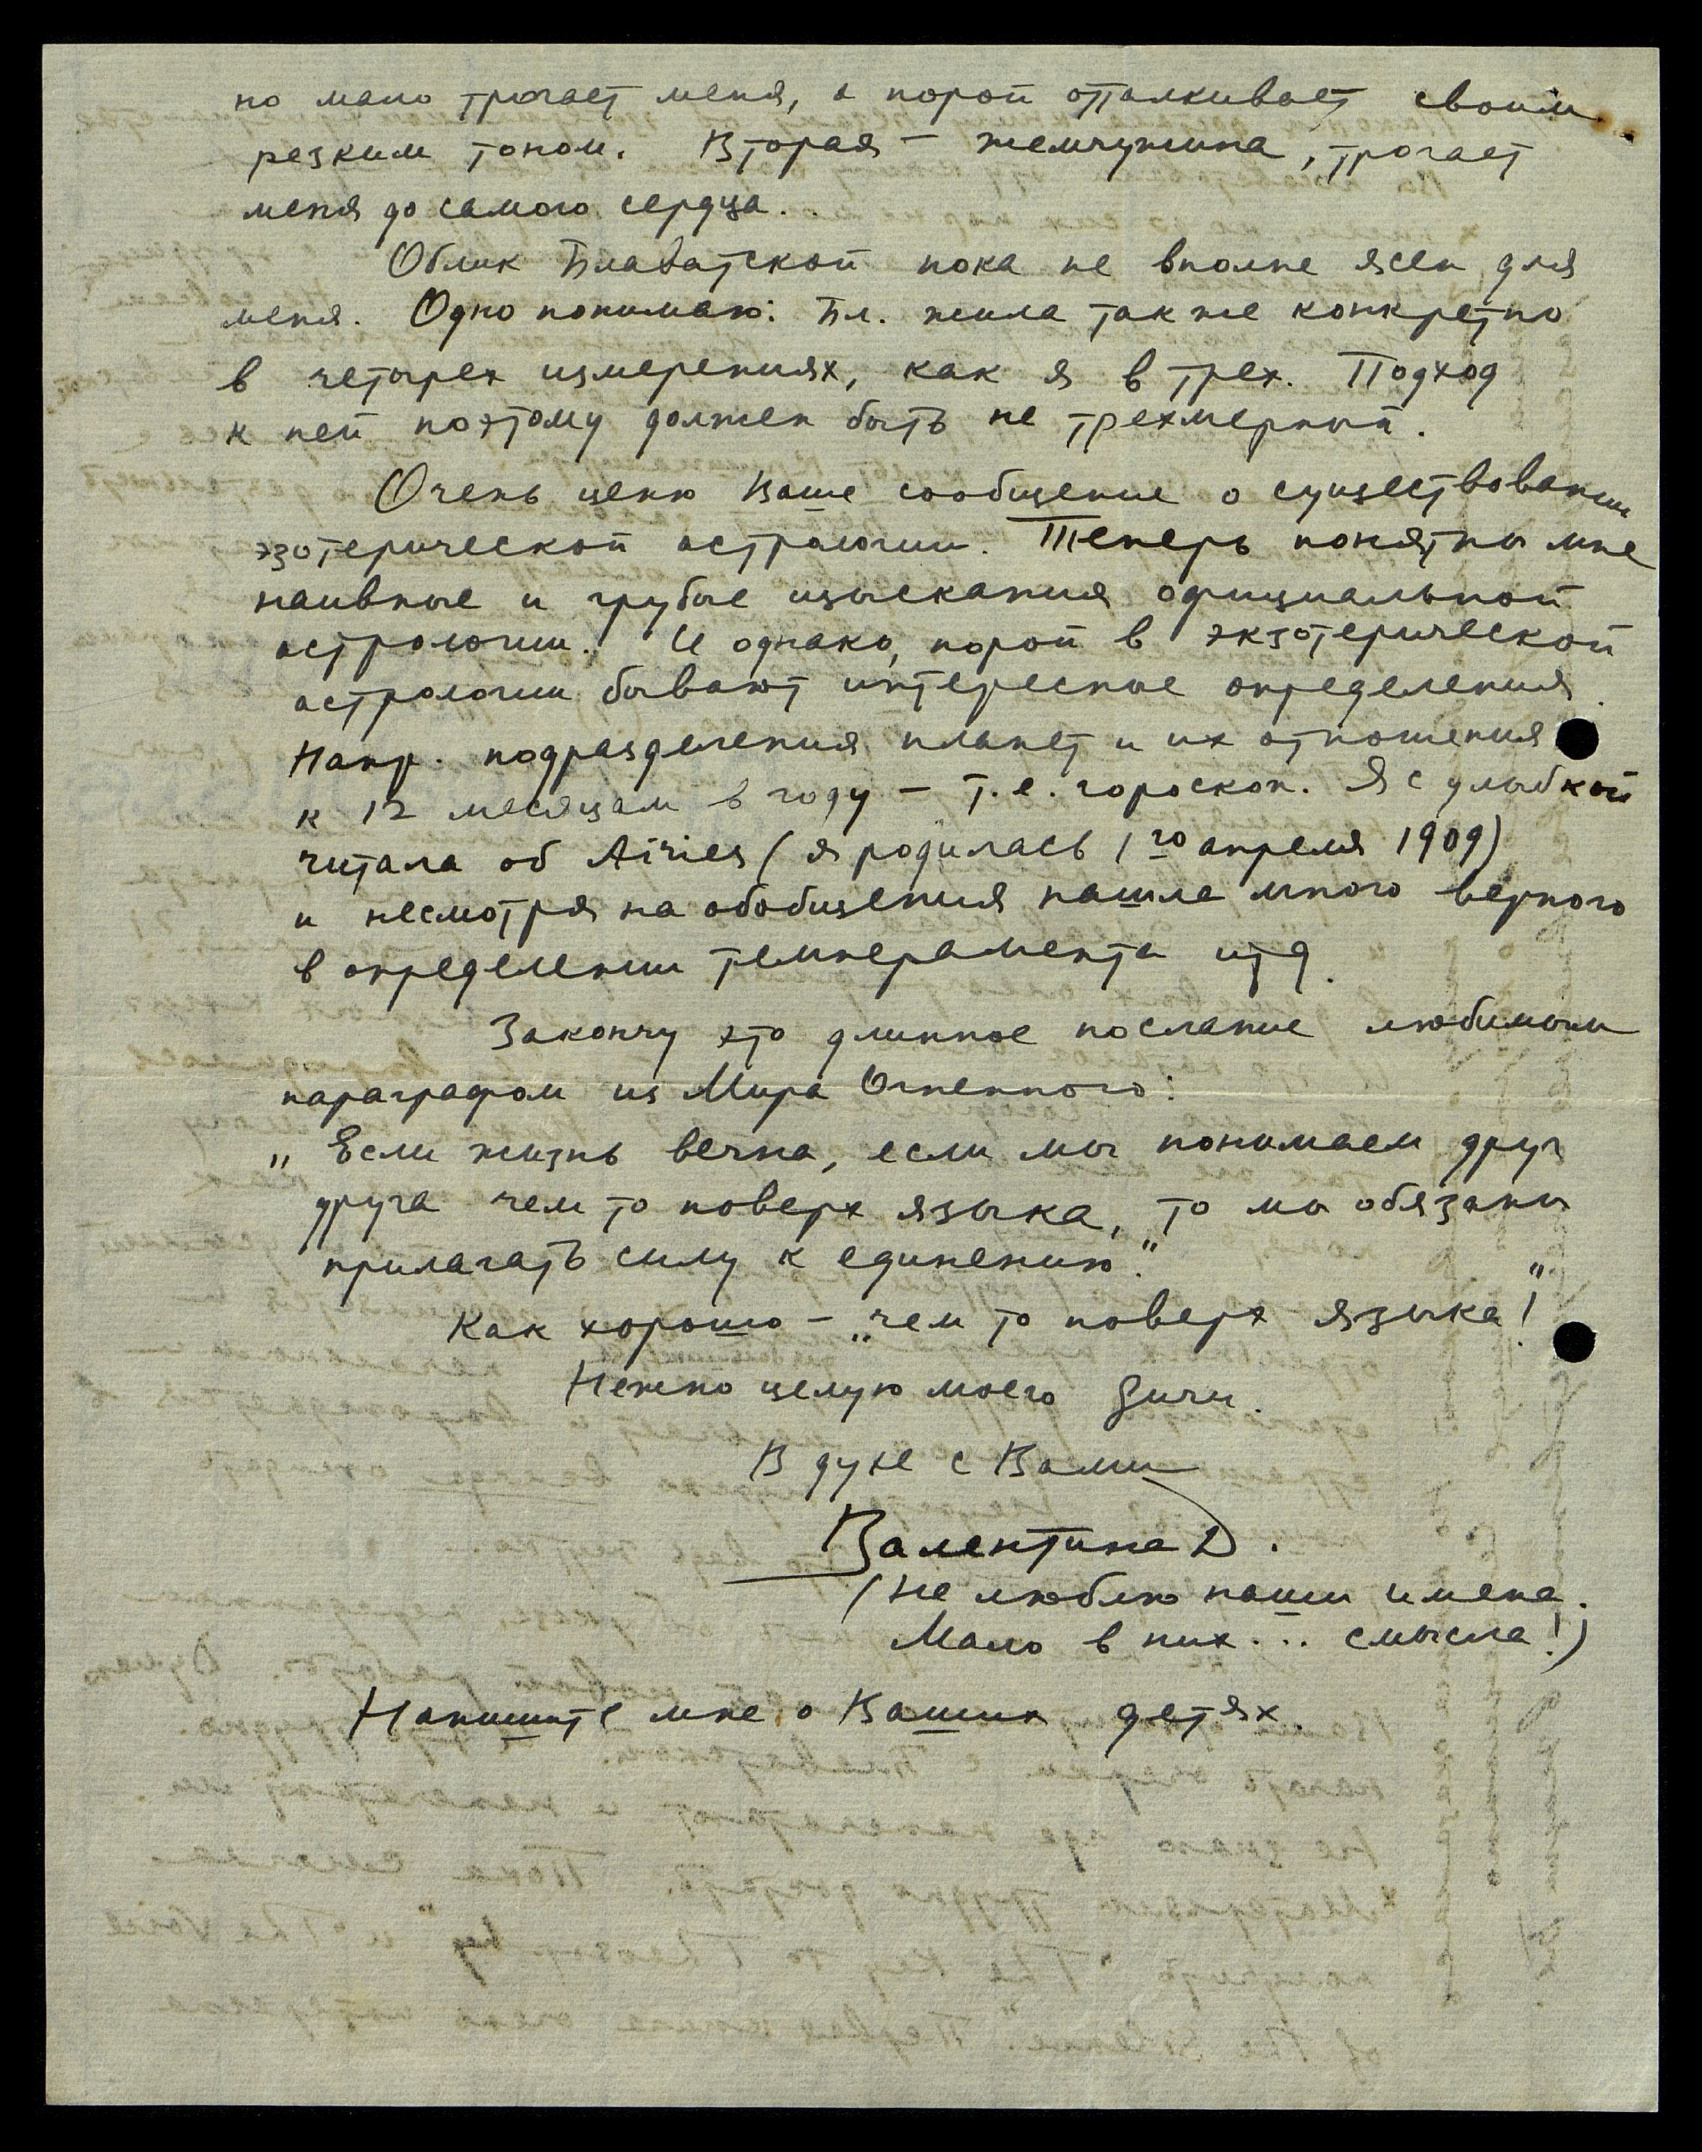 но мало трогает меня, а порой отталкивает своим
резким тоном. Вторая – жемчужина, трогает
меня до самого сердца.
Облик Блаватской пока не вполне ясен для
меня. Одно понимаю: Бл. жила так же конкретно
в четырех измерениях, как я в трех. Подход
к ней поэтому должен быть не трехмерный.
Очень ценю Ваше сообщение о существовании
эзотерической астрологии. Теперь понятны мне
наивные и грубые изыскания официальной
астрологии. И однако, порой в экзотерической
астрологии бывают интересные определения.
Напр. подразделения планет и их отношения
к 12 месяцам в году – т.е. гороскоп. Я с улыбкой
читала об Airies (я родилась 1го апреля 1909)
и несмотря на обобщения нашла много верного
в определении темперамента итд.
Закончу это длинное послание любимым
параграфом из Мира Огненного:
„Если жизнь вечна, если мы понимаем друг
друга чем то поверх языка, то мы обязаны
прилагать силу к единению."
Как хорошо – „чем то поверх языка!"
Нежно целую моего
В духе с Вами
Валентина D.
(Не люблю наши имена.
Мало в них... смысла!)
Напишите мне о Ваших детях.